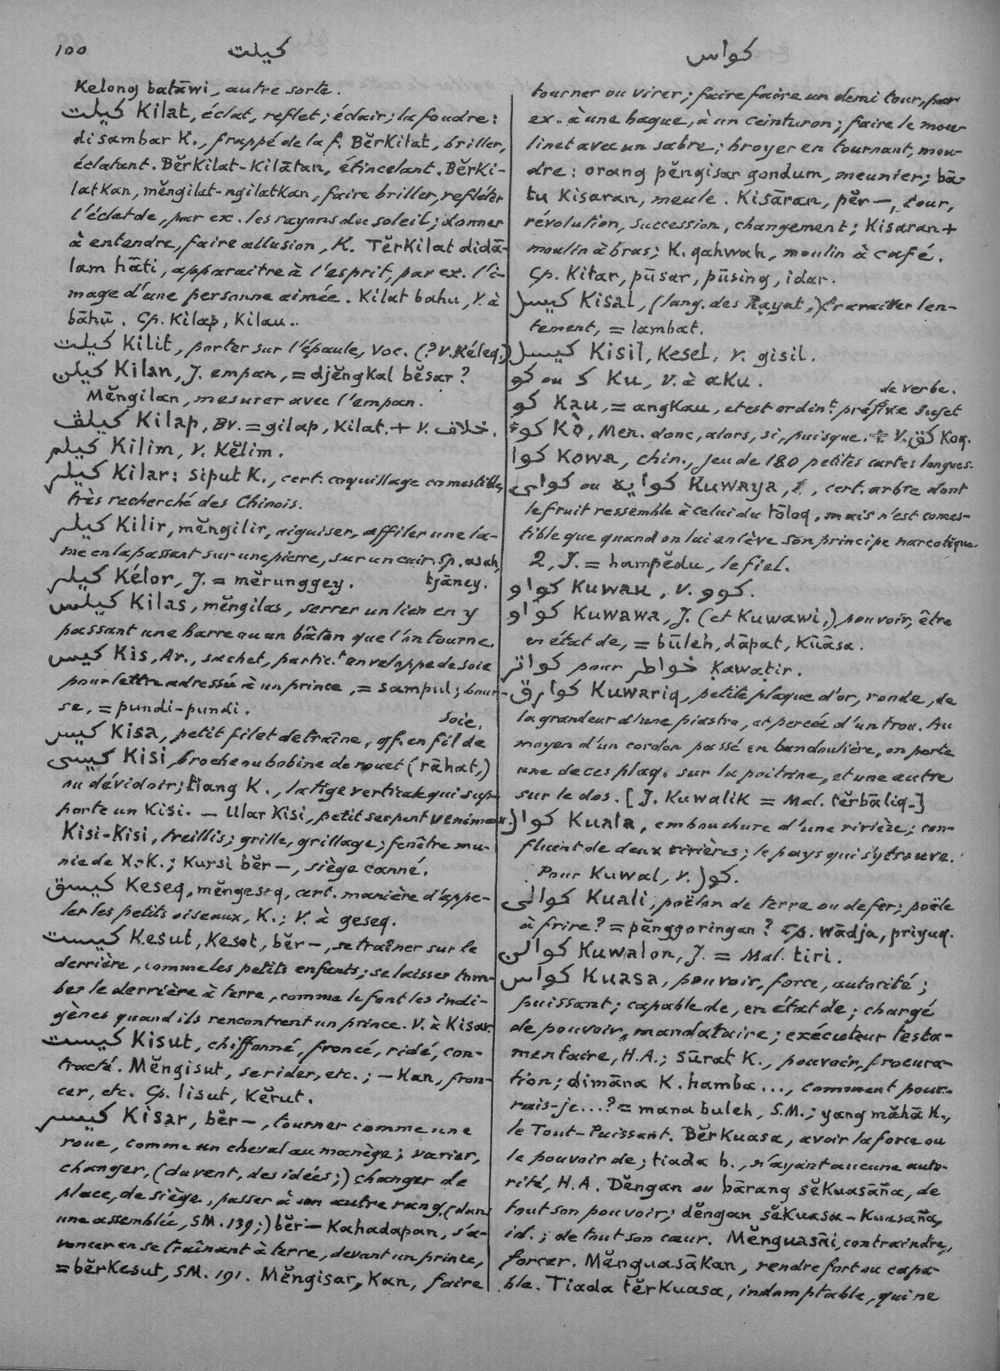 100
كيلت
كواس
Kelong batāwi, autre sorte.
كيلت Kilat, éclat, reflet; éclair; la foudre:
di sambar K., frappé de la f. Bĕrkilat, briller,
éclatant. Bĕrkilat-kilātan, étincelant. Bĕrki-
latkan, mĕngilat-ngilatkan, faire briller, refléter
l'éclat de, par ex. les rayons du soleil; donner
à entendre, faire allusion, K. Tĕrkilat didā-
lam hāti, apparaitre à l'esprit, par ex. l'i-
mage d'une personne aimée. Kilat bahu, V. à
bāhū. Cp. Kilap, Kilau.
كيلت Kilit, porter sur l'épaule, voc. (? V. Kéleq.)
كيلن Kilan, J. empan, = djĕngkal bĕsar?
Mĕngilan, mesurer avec l'empan.
كيلڤ Kilap, Bv. = gilap, Kilat. + V. خلاف.
كيلم Kilim, V. Kĕlim.
كيلر Kilar: siput K., cert. coquillage comestible,
très recherché des Chinois.
كيلر Kilir, mĕngilir, aiguiser, affiler une la-
me en la passant sur une pierre, sur un cuir. Cp. asah,
tjāney.
كيلر Kélor, J. = mĕrunggey.
كيلس Kilas, mĕngilas, serrer un lien en y
passant une barre ou un bâton que l'on tourne.
كيس Kis, Ar., sachet, partic.t enveloppe de soie
pour lettre adressée à un prince, = sampul; bour-
se, = pundi-pundi.
soie.
كيس Kisa, petit filet de traîne, qf. en fil de
كيسى Kisi, broche ou bobine de rouet (rāhat,)
ou dévidoir; tiang K., la tige verticale qui sup-
porte un Kisi. — Ular Kisi, petit serpent venimeux.
Kisi-Kisi, treillis; grille, grillage; fenêtre mu-
nie de K.-K.; Kursi bĕr—, siège canné.
كيسق Keseq, mĕngeseq, cert. manière d'appe-
ler les petits oiseaux, K.; V. à geseq.
كيست Kesut, Kesot, bĕr—, se traîner sur le
derrière, comme les petits enfants; se laisser tom-
ber le derrière à terre, comme le font les indi-
gènes quand ils rencontrent un prince. V. à Kisar.
كيست Kisut, chiffonné, froncé, ridé, con-
tracté. Mĕngisut, se rider, etc.; — Kan, fron-
cer, etc. Cp. lisut, Kĕrut.
كيسر Kisar, bĕr—, tourner comme une
roue, comme un cheval au manège; varier,
changer, (du vent, des idées;) changer de
place, de siège, passer à un autre rang, (dans
une assemblée, SM. 139;) bĕr— Kahadapan, s'a-
vancer en se traînant à terre, devant un prince,
= bĕrkesut, SM. 191. Mĕngisar, Kan, faire
tourner ou virer; faire faire un demi tour, par
ex. à une bague, à un ceinturon; faire le mou-
linet avec un sabre; broyer en tournant, mou-
dre: orang pĕngisar gondum, meunier; bā-
tu Kisaran, meule. Kisāran, pĕr—, tour,
révolution, succession, changement; Kisaran +
moulin à bras; K. qahwah, moulin à café.
Cp. Kitar, pūsar, pūsing, idar.
كيسل Kisal, (lang. des Rayat,) travailler len-
tement, = lambat.
كيسل Kisil, Kesel, V. gisil.
كو ou ك Ku, V. à aku.
de verbe.
كو Kau, = angkau, et est ordin.t préfixe sujet
كوء Kŏ, Men. donc, alors, si, puisque. + V. كق Koq.
كوا Kowa, chin., jeu de 180 petites cartes longues.
كواى ou كوايه Kuwaya, 1, cert. arbre dont
le fruit ressemble à celui du tōloq, mais n'est comes-
tible que quand on lui enlève son principe narcotique.
2, J. = hampĕdu, le fiel.
كواو Kuwau, V. كوو.
كواو Kuwawa, J. (et Kuwawi,) pouvoir, être
en état de, = būleh, dāpat, Kūāsa.
كواتر pour خواطر Kawatir.
كوارق Kuwariq, petite plaque d'or, ronde, de
la grandeur d'une piastre, et percée d'un trou. Au
moyen d'un cordon passé en bandoulière, on porte
une de ces plaq. sur la poitrine, et une autre
sur le dos. [J. Kuwalik = Mal. tĕrbāliq.]
كوال Kuala, embouchure d'une rivière; con-
fluent de deux rivières; le pays qui s'y trouve.
Pour Kuwal, V. كول.
كوالى Kuali, poëlon de terre ou de fer; poële
à frire? = pĕnggoringan? Cp. wādja, priyuq.
كوالن Kuwalon, J. = Mal. tiri.
كواس Kuasa, pouvoir, force, autorité;
puissant; capable de, en état de; chargé
de pouvoir, mandataire; exécuteur testa-
mentaire, H.A.; sūrat K., pouvoir, procura-
tion; dimāna K. hamba..., comment pour-
rais-je...? = mana buleh, S.M.; yang māhā K.,
le Tout-Puissant. Bĕrkuasa, avoir la force ou
le pouvoir de; tiada b., n'ayant aucune auto-
rité, H.A. Dĕngan ou bārang sĕkuasāña, de
tout son pouvoir; dĕngan sĕkuasa-kuasaña,
id.; de tout son cœur. Mĕnguasāi, contraindre,
forcer. Mĕnguasākan, rendre fort ou capa-
ble. Tiada tĕrkuasa, indomptable, qui ne